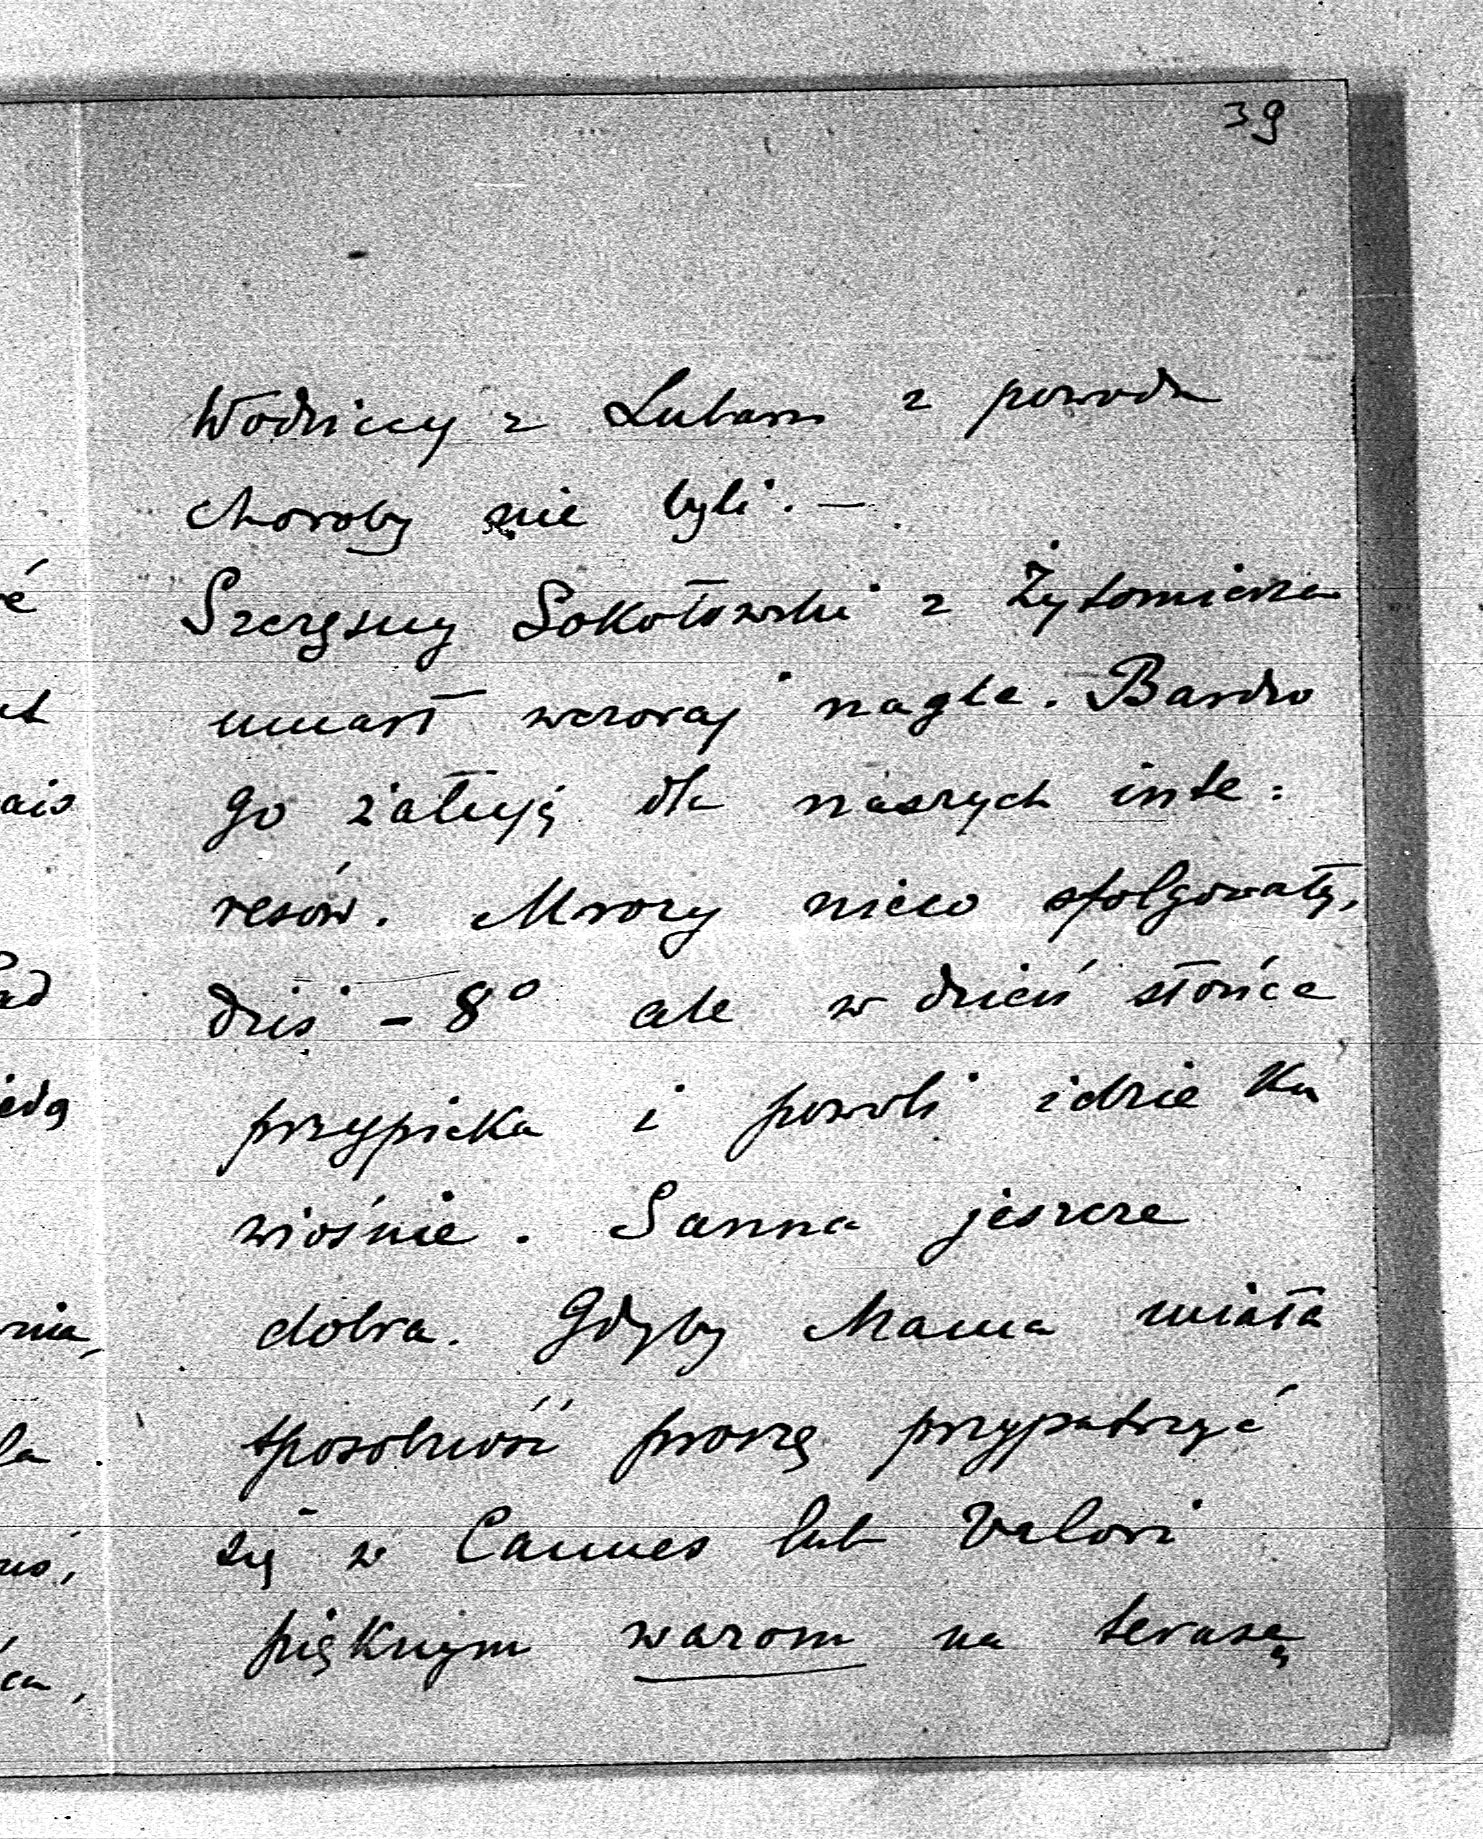 39
Wodziccy z Lubaru z powodu
choroby nie byli. —
Szczęsny Sokołowski z Żytomierza
umarł wczoraj nagle. Bardzo
go żałuję dla naszych inte:
resów. Mrozy nieco sfolgowały,
dziś - 8° ale w dzień słońce
przypieka i powoli idzie ku
wiośnie. Sanna jeszcze
dobra. Gdyby Mama miała
sposobność proszę przypatrzyć
się w Cannes lub Valori
pięknym wazom na terasę